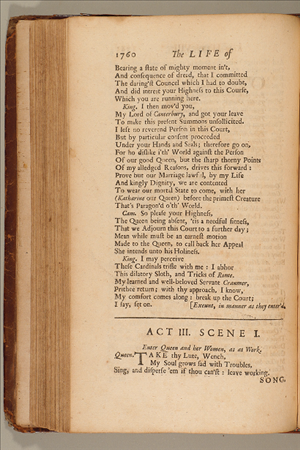 1760 The LIFE of
Bearing a ſtate of mighty moment in't,
And conſequence of dread, that I committed
The daring'ſt Council which I had to doubt,
And did intreat your Highneſs to this Courſe,
Which you are running here.
King. I then mov'd you,
My Lord of Canterbury, and got your leave
To make this preſent Summons unſollicited.
I left no reverend Perſon in this Court,
But by particular conſent proceeded
Under your Hands and Seals; therefore go on,
For no diſlike i'th' World againſt the Perſon
Of our good Queen, but the ſharp thorny Points
Of my alledged Reaſons, drives this forward:
Prove but our Marriage lawful, by my Life
And kingly Dignity, we are contented
To wear our mortal State to come, with her
(Katharine our Queen) before the primeſt Creature
That's Paragon'd o'th' World.
Cam. So pleaſe your Highneſs,
The Queen being abſent, 'tis a needful fitneſs,
That we Adjourn this Court to a further day;
Mean while muſt be an earneſt motion
Made to the Queen, to call back her Appeal
She intends unto his Holineſs.
King. I may perceive
Theſe Cardinals trifle with me: I abhor
This dilatory Sloth, and Tricks of Rome.
My learned and well-beloved Servant Cranmer,
Prithee return; with thy approach, I know,
My comfort comes along: break up the Court;
I ſay, ſet on. [Exeunt, in manner as they enter'd.
ACT III. SCENE I.
Enter Queen and her Women, as at Work.
Queen. TAKE thy Lute, Wench,
My Soul grows ſad with Troubles,
Sing, and diſperſe 'em if thou can'ſt: leave working.
SONG.